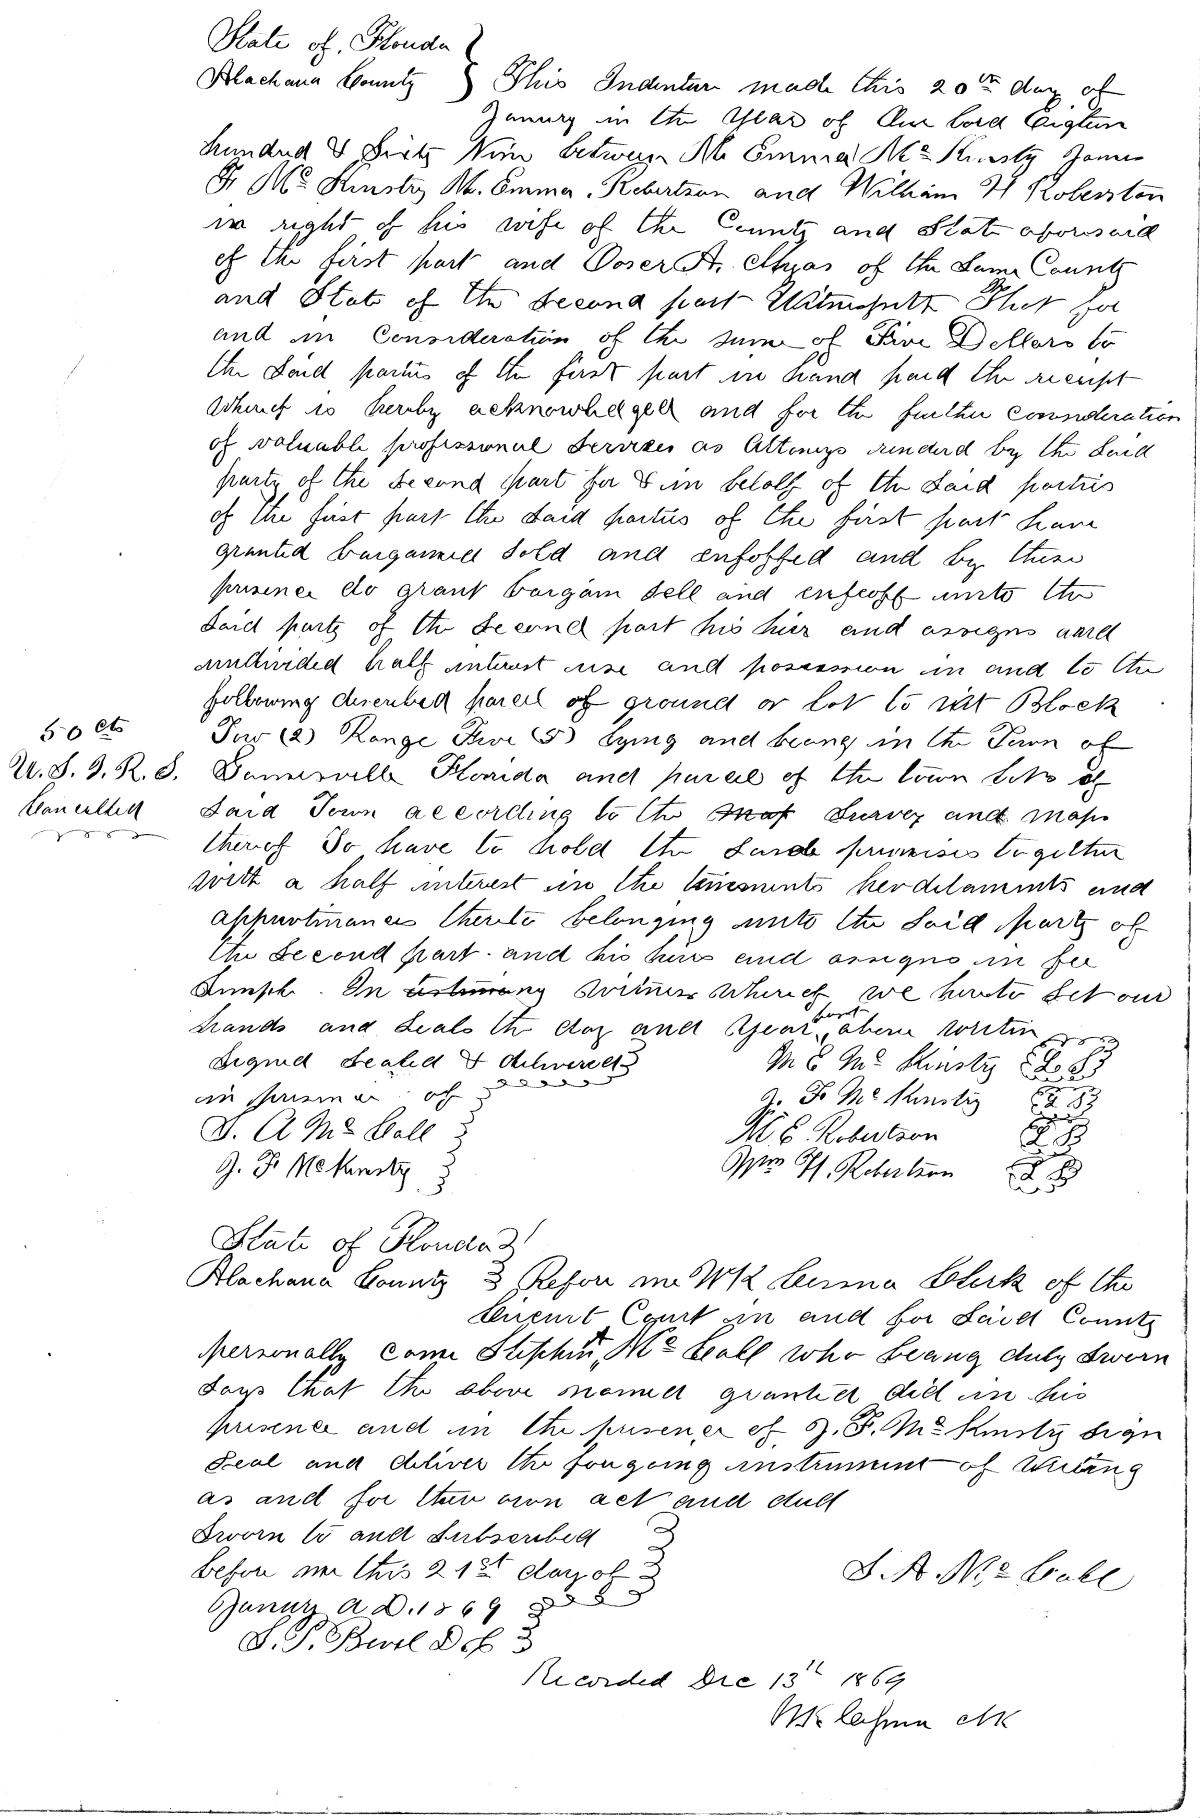 State of Florida
Alachua County } This Indenture made this 20th day of
Janury in the Year of Our Lord Eigteen
hundred & Sixty Nine between M. Emma McKinsty James
F. McKinstry M. Emma Robertson and William H Roberston
in right of his wife of the County and State aforesaid
of the first part and Oser A. Myas of the Same County
and State of the Second part Witnesseth That for
and in Consideration of the sum of Five Dollars to
the Said parties of the first part in hand paid the reciept
Whereof is hereby acknowledged and for the further consideration
of valuable professional Services as Attorneys renderd by the Said
party of the Second part for & in behalf of the Said parties
of the first part the Said parties of the first part have
granted bargained Sold and enfoffed and by these
presence do grant bargain Sell and enfeoff unto the
Said party of the Second part his hier and assigns and
undivided half interest use and possession in and to the
following discribed parcel of ground or lot to wit Block
50 cts
U.S.I.R.S.
Cancelled
Tow (2) Range Five (5) lying and being in the Town of
Gainesville Florida and parcel of the town lots of
Said Town according to the map Survey and maps
thereof To have to hold the Said premises together
with a half interest in the tenements herditaments and
appurtinances thereto belonging unto the Said party of
the Second part and his heirs and assigns in fee
Simple. In testimony witness whereof we hereto Set our
hands and Seals the day and Year first above writin
Signed Sealed & delivered
in presence of
S. A McCall
J. F. McKinsty
M E McKinstry L. S
J. F. McKinstry L S
M E Robertson L S
Wm H. Robertson L S
State of Florida
Alachua County Before me WK Cessna Clerk of the
Circuit Court in and for Said County
personally come Stephen A McCall who being duly Sworn
Says that the above named granted did in his
presence and in the presence of J. F. McKinsty Sign
Seal and deliver the forgoing instrument of Writing
as and for their own act and deed
Sworn to and Subscribed
before me this 21st day of
Janury A D. 1869
S. A. McCall
Recorded Dec 13th 1869
WK Cessna Clk